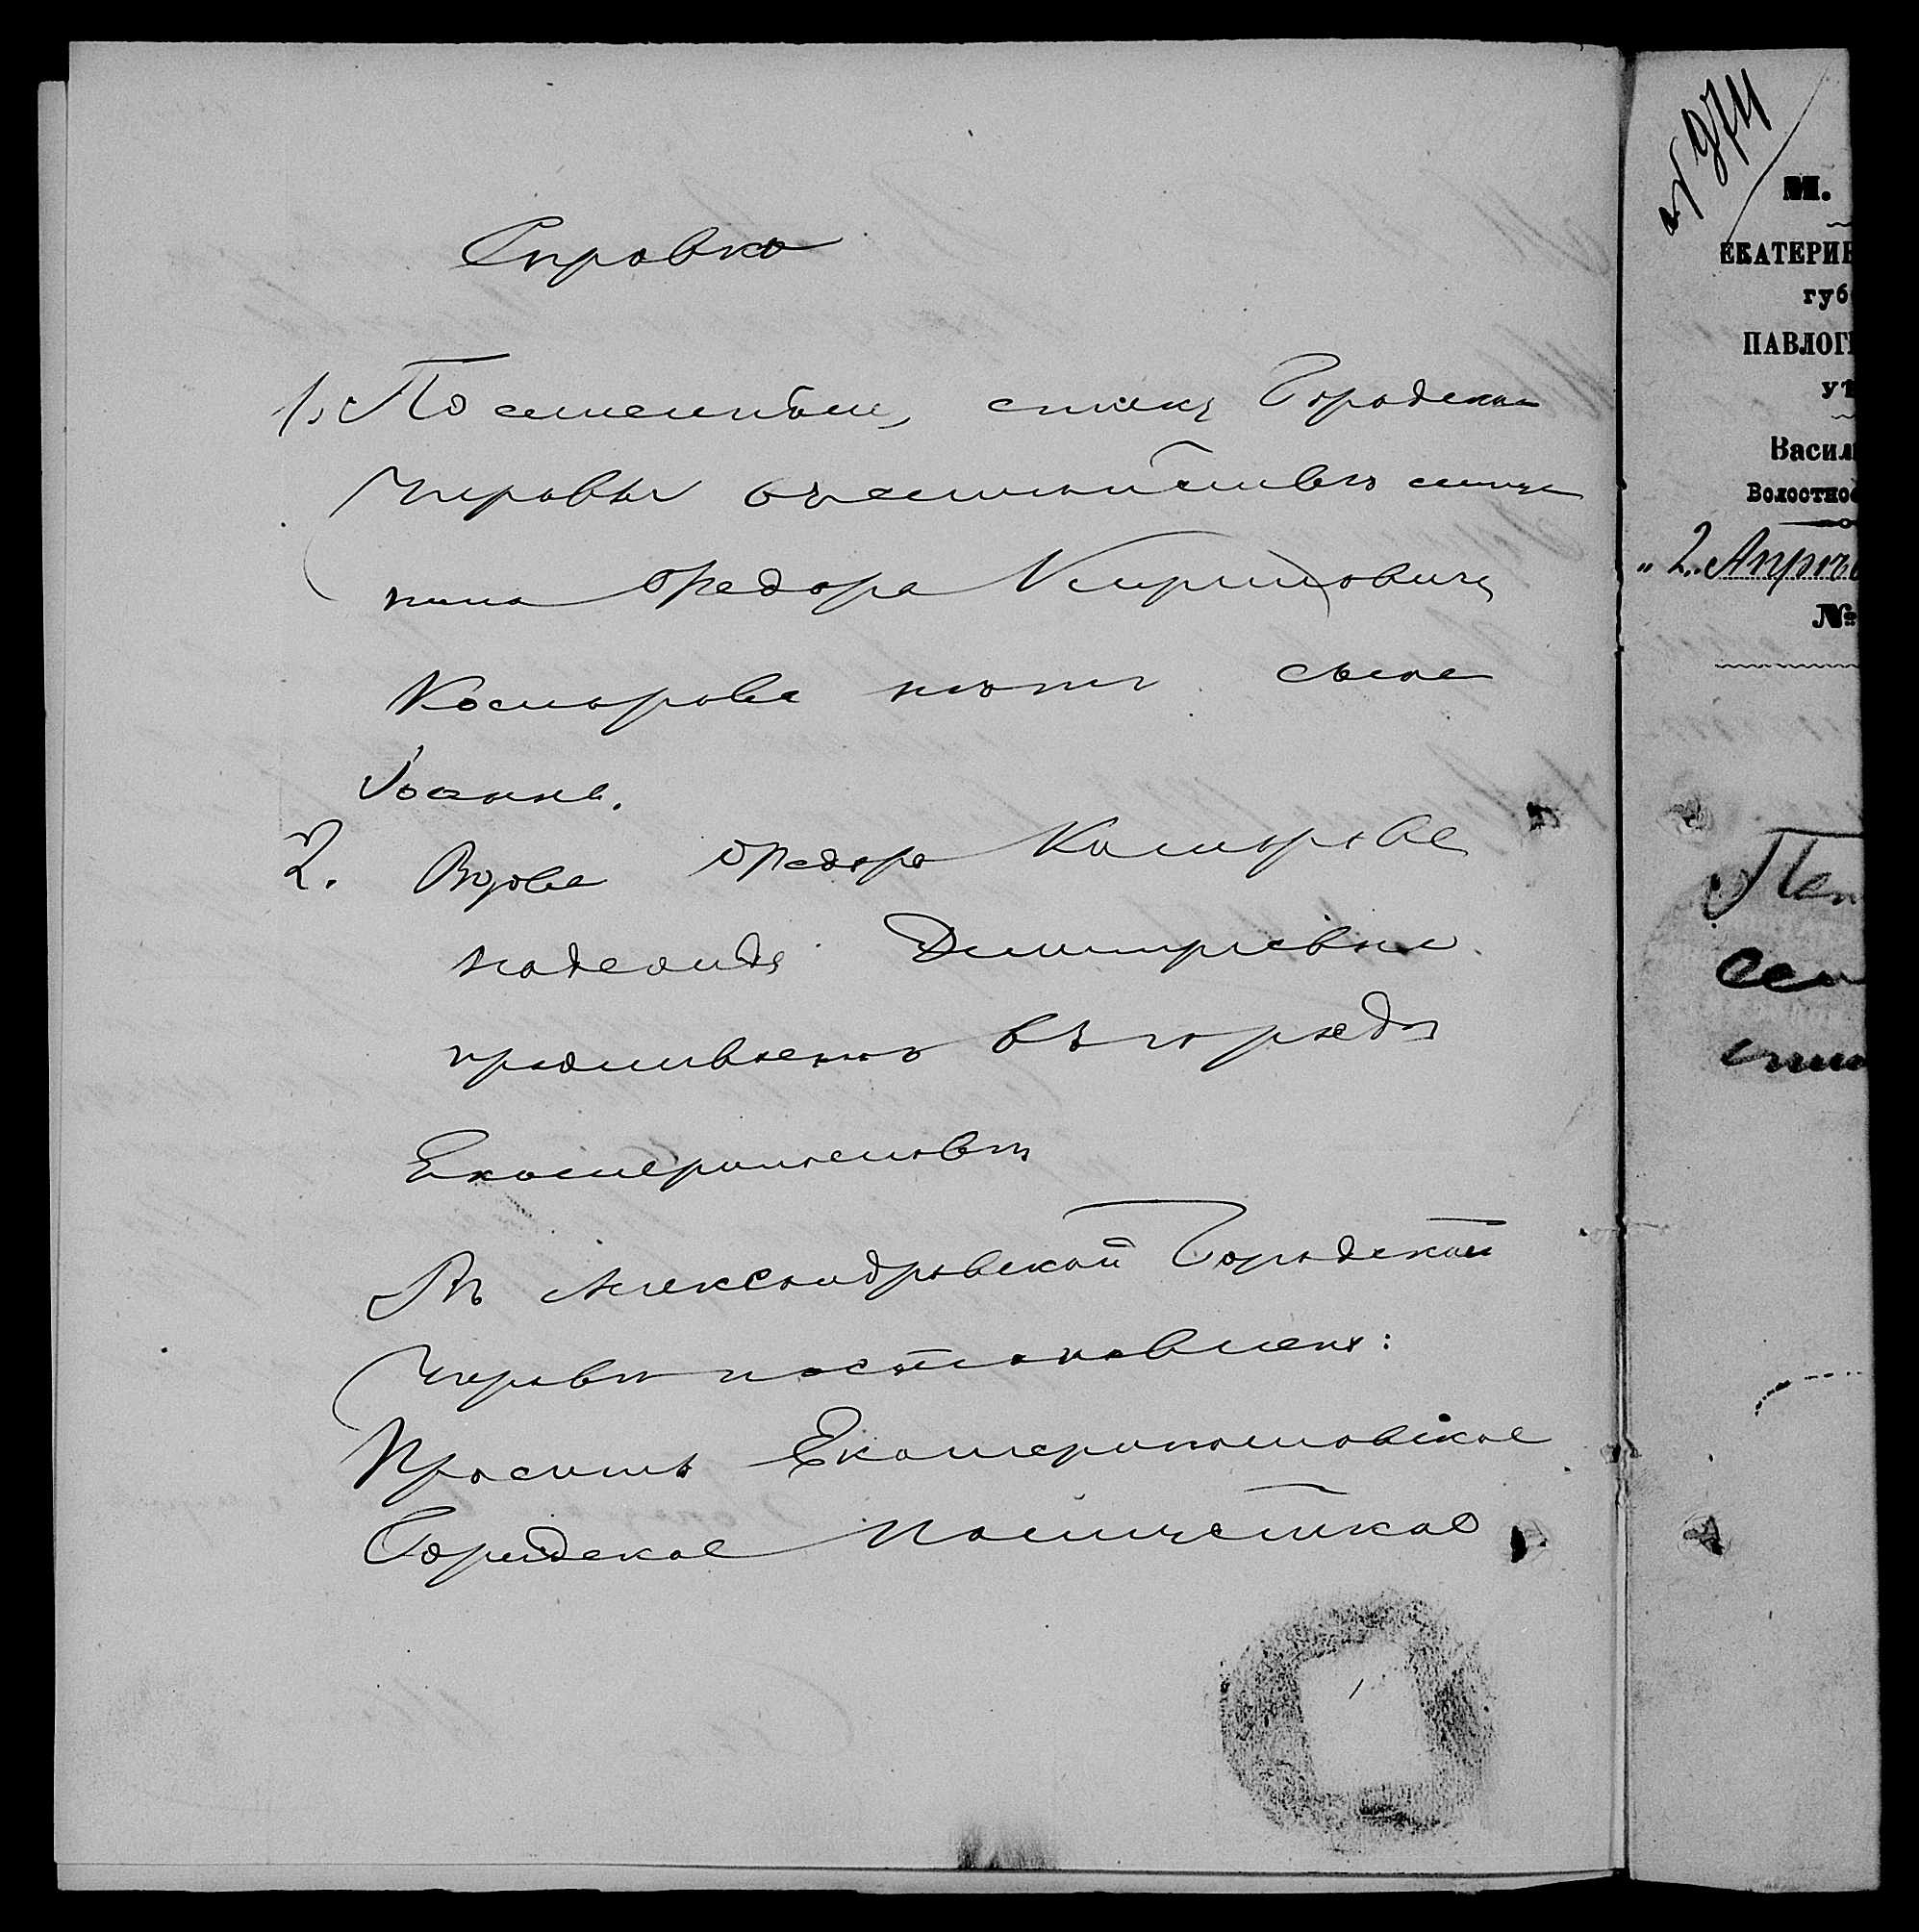 Справка
1) По семейным спискамъ Городской
Управы въ семействѣ меща
нина Федора Кирилловича
Комарова нѣтъ сына
Іоанна.
2. Вдова Федора Комарова
Надежда Димитріевна
проживаетъ въ городѣ
Екатеринославѣ
Въ Александровской Городской
Управѣ постановлено:
Просить Екатеринославское
Городское Полицейское
№ 974
М.
ЕКАТЕРИН
губ
ПАВЛОГР
уѣ
Васил
Волостное
„ 2 „ Апрѣл
№